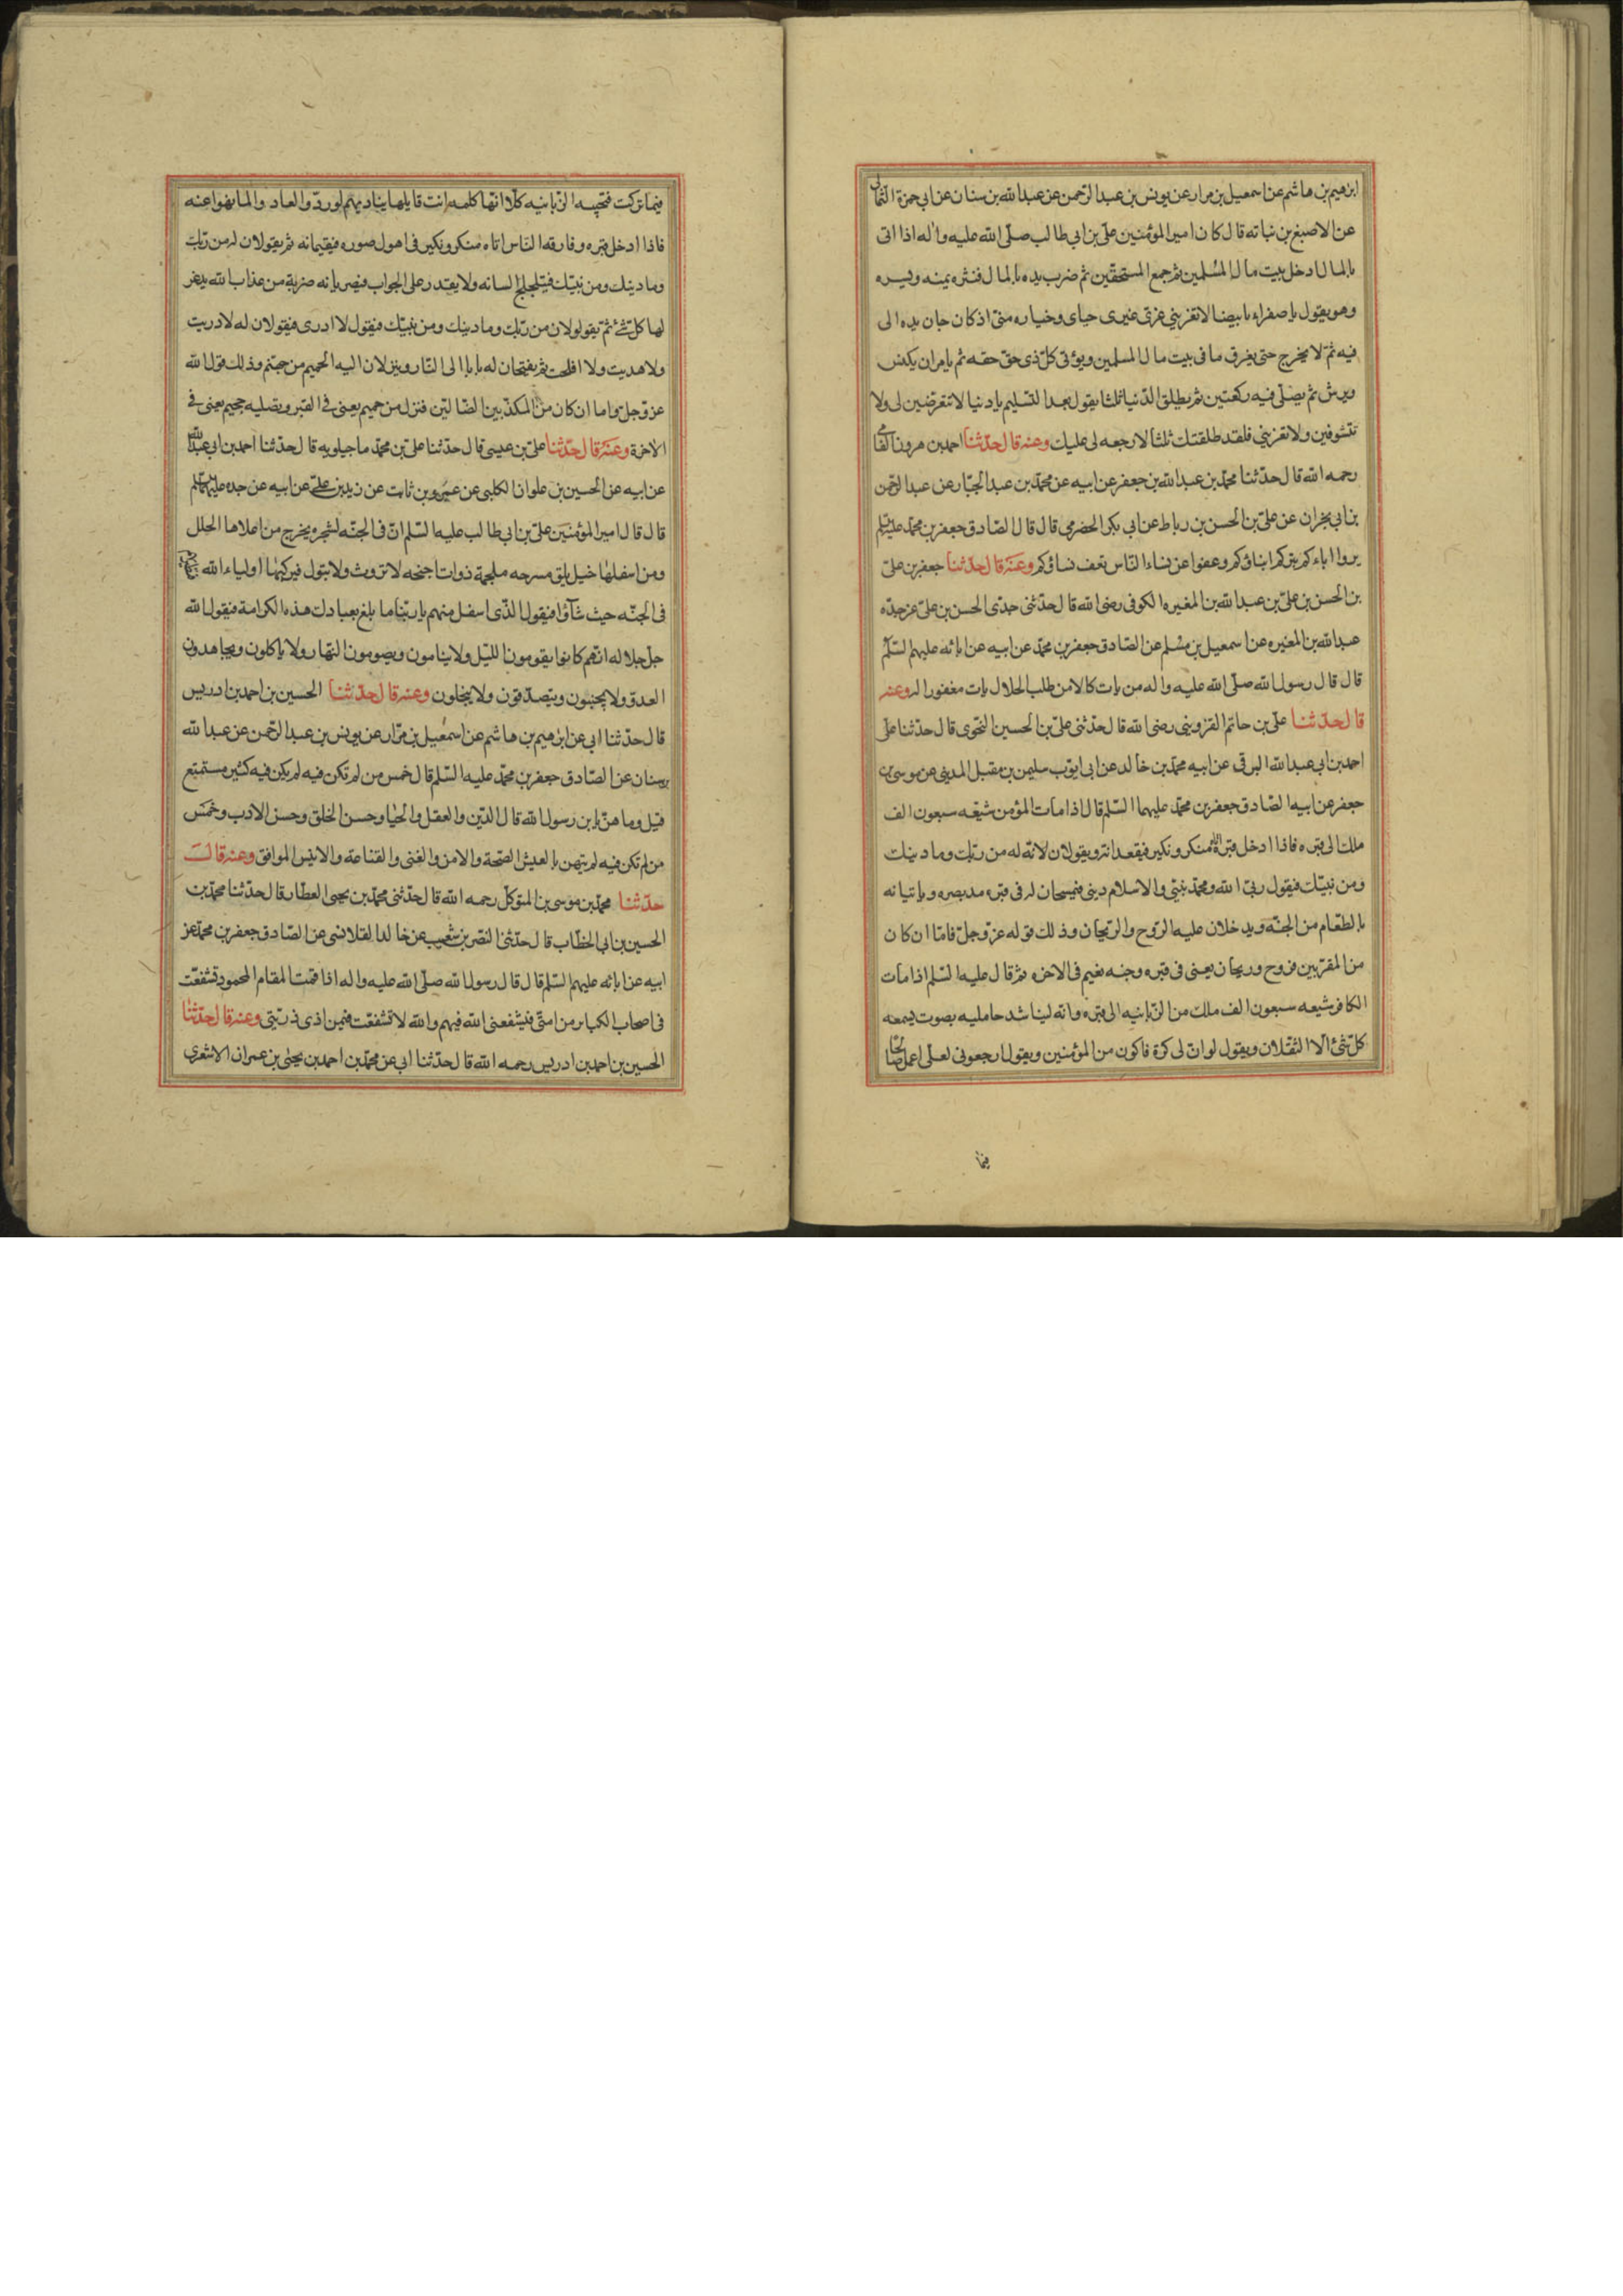 ابرهيم بن هاشم عن اسمعيل بن مرار عن يونس بن عبد الرّحمن عن عبد الله بن سنان عن ابي حمزة الثمالى
عن الاصبغ بن نباته قال كان امير المؤمنين علىّ بن ابي طالب صلّى الله عليه واله اذا اتى
بالمال ادخل بيت مال المسلمين ثم جمع المستحقّين ثم ضرب يده بالمال فنثره يمنه ويسره
وهو يقول يا صفراء يا بيضا لا تغريني غرّى غيرى هذا جناى وخياره فيه اذ كان جان يده الى
فيه ثمّ لا يخرج حتى يفرق ما فى بيت مال المسلمين ويؤتى كلّ ذى حقّ حقه ثم يامر ان يكنس
ويرش ثم يصلّى فيه ركعتين ثم يطلق الدّنيا ثلثا يقول بعد التسليم يا دنيا لا تتعرّضين لى ولا
تتشوقين ولا تغريني فلقد طلقتك ثلثا لا رجعه لى عليك وعنه قال حدّثنا احمد بن هرون الفامى
رحمه الله قال حدّثنا محمّد بن عبد الله بن جعفر عن ابيه عن محمّد بن عبد الجبّار عن عبد الرّحمن
بن ابي نجران عن علىّ بن الحسن بن رباط عن ابي بكر الحضرمى قال قال الصّادق جعفر بن محمّد عليه السّلم
بروا اباءكم يبركم ابناؤكم وعفوا عن نساء النّاس تعف نساؤكم وعنه قال حدّثنا جعفر بن علىّ
بن الحسن بن علىّ بن عبد الله بن المغيره الكوفى رضى الله قال حدّثنى جدّى الحسن بن علىّ عن جدّه
عبد الله بن المغيره عن اسمعيل بن مسلم عن الصّادق جعفر بن محمّد عن ابيه عن ابائه عليهم السّلم
قال قال رسول الله صلّى الله عليه واله من بات كالا من طلب الحلال بات مغفورا له وعنه
قال حدّثنا علىّ بن حاتم القزوينى رضى الله قال حدّثنى علىّ بن الحسين النّحوى قال حدّثنا على
احمد بن ابي عبد الله البرقى عن ابيه محمّد بن خالد عن ابى ايّوب سليمن بن مقبل المدينى عن موسى بن
جعفر عن ابيه الصّادق جعفر بن محمّد عليهما السّلم قال اذا مات المؤمن شيّعه سبعون الف
ملك الى قبره فاذا ادخل قبره اتاه منكر ونكير فيقعدانه ويقولان له من ربّك وما دينك
ومن نبيّك فيقول ربّى الله ومحمّد نبيّى والاسلام دينى فيفسحان له فى قبره مد بصره وياتيانه
بالطعام من الجنّه ويدخلان عليه الرّوح والرّيحان وذلك قوله عزّ وجلّ فامّا ان كان
من المقرّبين فروح وريحان يعنى فى قبره وجنه نعيم فى الاخره ثم قال عليه السّلم اذا مات
الكافر شيعه سبعون الف ملك من الزّبانيه الى قبره وانه ليناشد حامليه بصوت يسمعه
كلّ شئ الّا الثقلان ويقول لو انّ لى كرّة فاكون من المؤمنين ويقول ارجعونى لعلّى اعمل صالحا
فيما
فيما تركت فتجيبه الزّبانيه كلّا انّها كلمه انت قايلها يناديهم لو ردّوا لعادوا لما نهوا عنه
فاذا ادخل قبره وفارقه النّاس اتاه منكر ونكير فى اهول صوره فيقيمانه ثم يقولان له من ربّك
وما دينك ومن نبيّك فيتلجلج لسانه ولا يقدر على الجواب فيضربانه ضربة من عذاب الله يذعر
لها كلّ شئ ثمّ يقولولان من ربّك وما دينك ومن نبيّك فيقول لا ادرى فيقولان له لا دريت
ولا هديت ولا افلحت ثم يفتحان له بابا الى النّار وينزلان اليه الحميم من جهنّم وذلك قول الله
عزّ وجلّ واما ان كان من المكذّبين الضّالّين فنزل من حميم يعنى فى القبر وتصليه جحيم يعنى فى
الاخرة وعنه قال حدّثنا علىّ بن عيسى قال حدثنا علىّ بن محمّد ماجيلويه قال حدّثنا احمد بن ابي عبد الله
عن ابيه عن الحسين بن علوان الكلبى عن عمرو بن ثابت عن زيد بن علىّ عن ابيه عن جده عليهم السّلم
قال قال امير المؤمنين علىّ بن ابي طالب عليه السّلم انّ فى الجنّه لشجره يخرج من اعلاها الحلل
ومن اسفلها خيل بلق مسرجه ملجمة ذوات اجنحه لا تروث ولا تبول فيركبها اولياء الله فتطير بهم
فى الجنّه حيث شاؤا فيقول الذّى اسفل منهم يا ربّنا ما بلغ بعبادك هذه الكرامة فيقول الله
جلّ جلاله انّهم كانوا يقومون اللّيل ولا ينامون ويصومون النّهار ولا ياكلون ويجاهدون
العدوّ ولا يجبنون ويتصدّقون ولا يبخلون وعنه قال حدّثنا الحسين بن احمد بن ادريس
قال حدّثنا ابى عن ابرهيم بن هاشم عن اسمعيل بن مرّار عن يونس بن عبد الرّحمن عن عبد الله
بن سنان عن الصّادق جعفر بن محمّد عليه السّلم قال خمس من لم تكن فيه لم يكن فيه كثير مستمتع
قيل وما هنّ يا بن رسول الله قال الدّين والعقل والحيا وحسن الخلق وحسن الادب وخمس
من لم تكن فيه لم يتهن بالعيش الصّحة والامن والغنى والقناعة والانيس الموافق وعنه قال
حدّثنا محمّد بن موسى بن المتوكّل رحمه الله قال حدّثنى محمّد بن يحيى العطّار قال حدّثنا محمّد بن
الحسين بن ابى الخطّاب قال حدّثنى النّضر بن شعيب عن خالد القلانسى عن الصّادق جعفر بن محمّد عن
ابيه عن ابائه عليهم السّلم قال قال رسول الله صلّى الله عليه واله اذا قمت المقام المحمود تشفّعت
فى اصحاب الكبائر من امتّى فيشفعنى الله فيهم والله لا تشفّعت فيمن اذى ذريّتى وعنه قال حدّثنا
الحسين بن احمد بن ادريس رحمه الله قال حدّثنا ابى عن محمّد بن احمد بن يحيى بن عمران الاشعرى